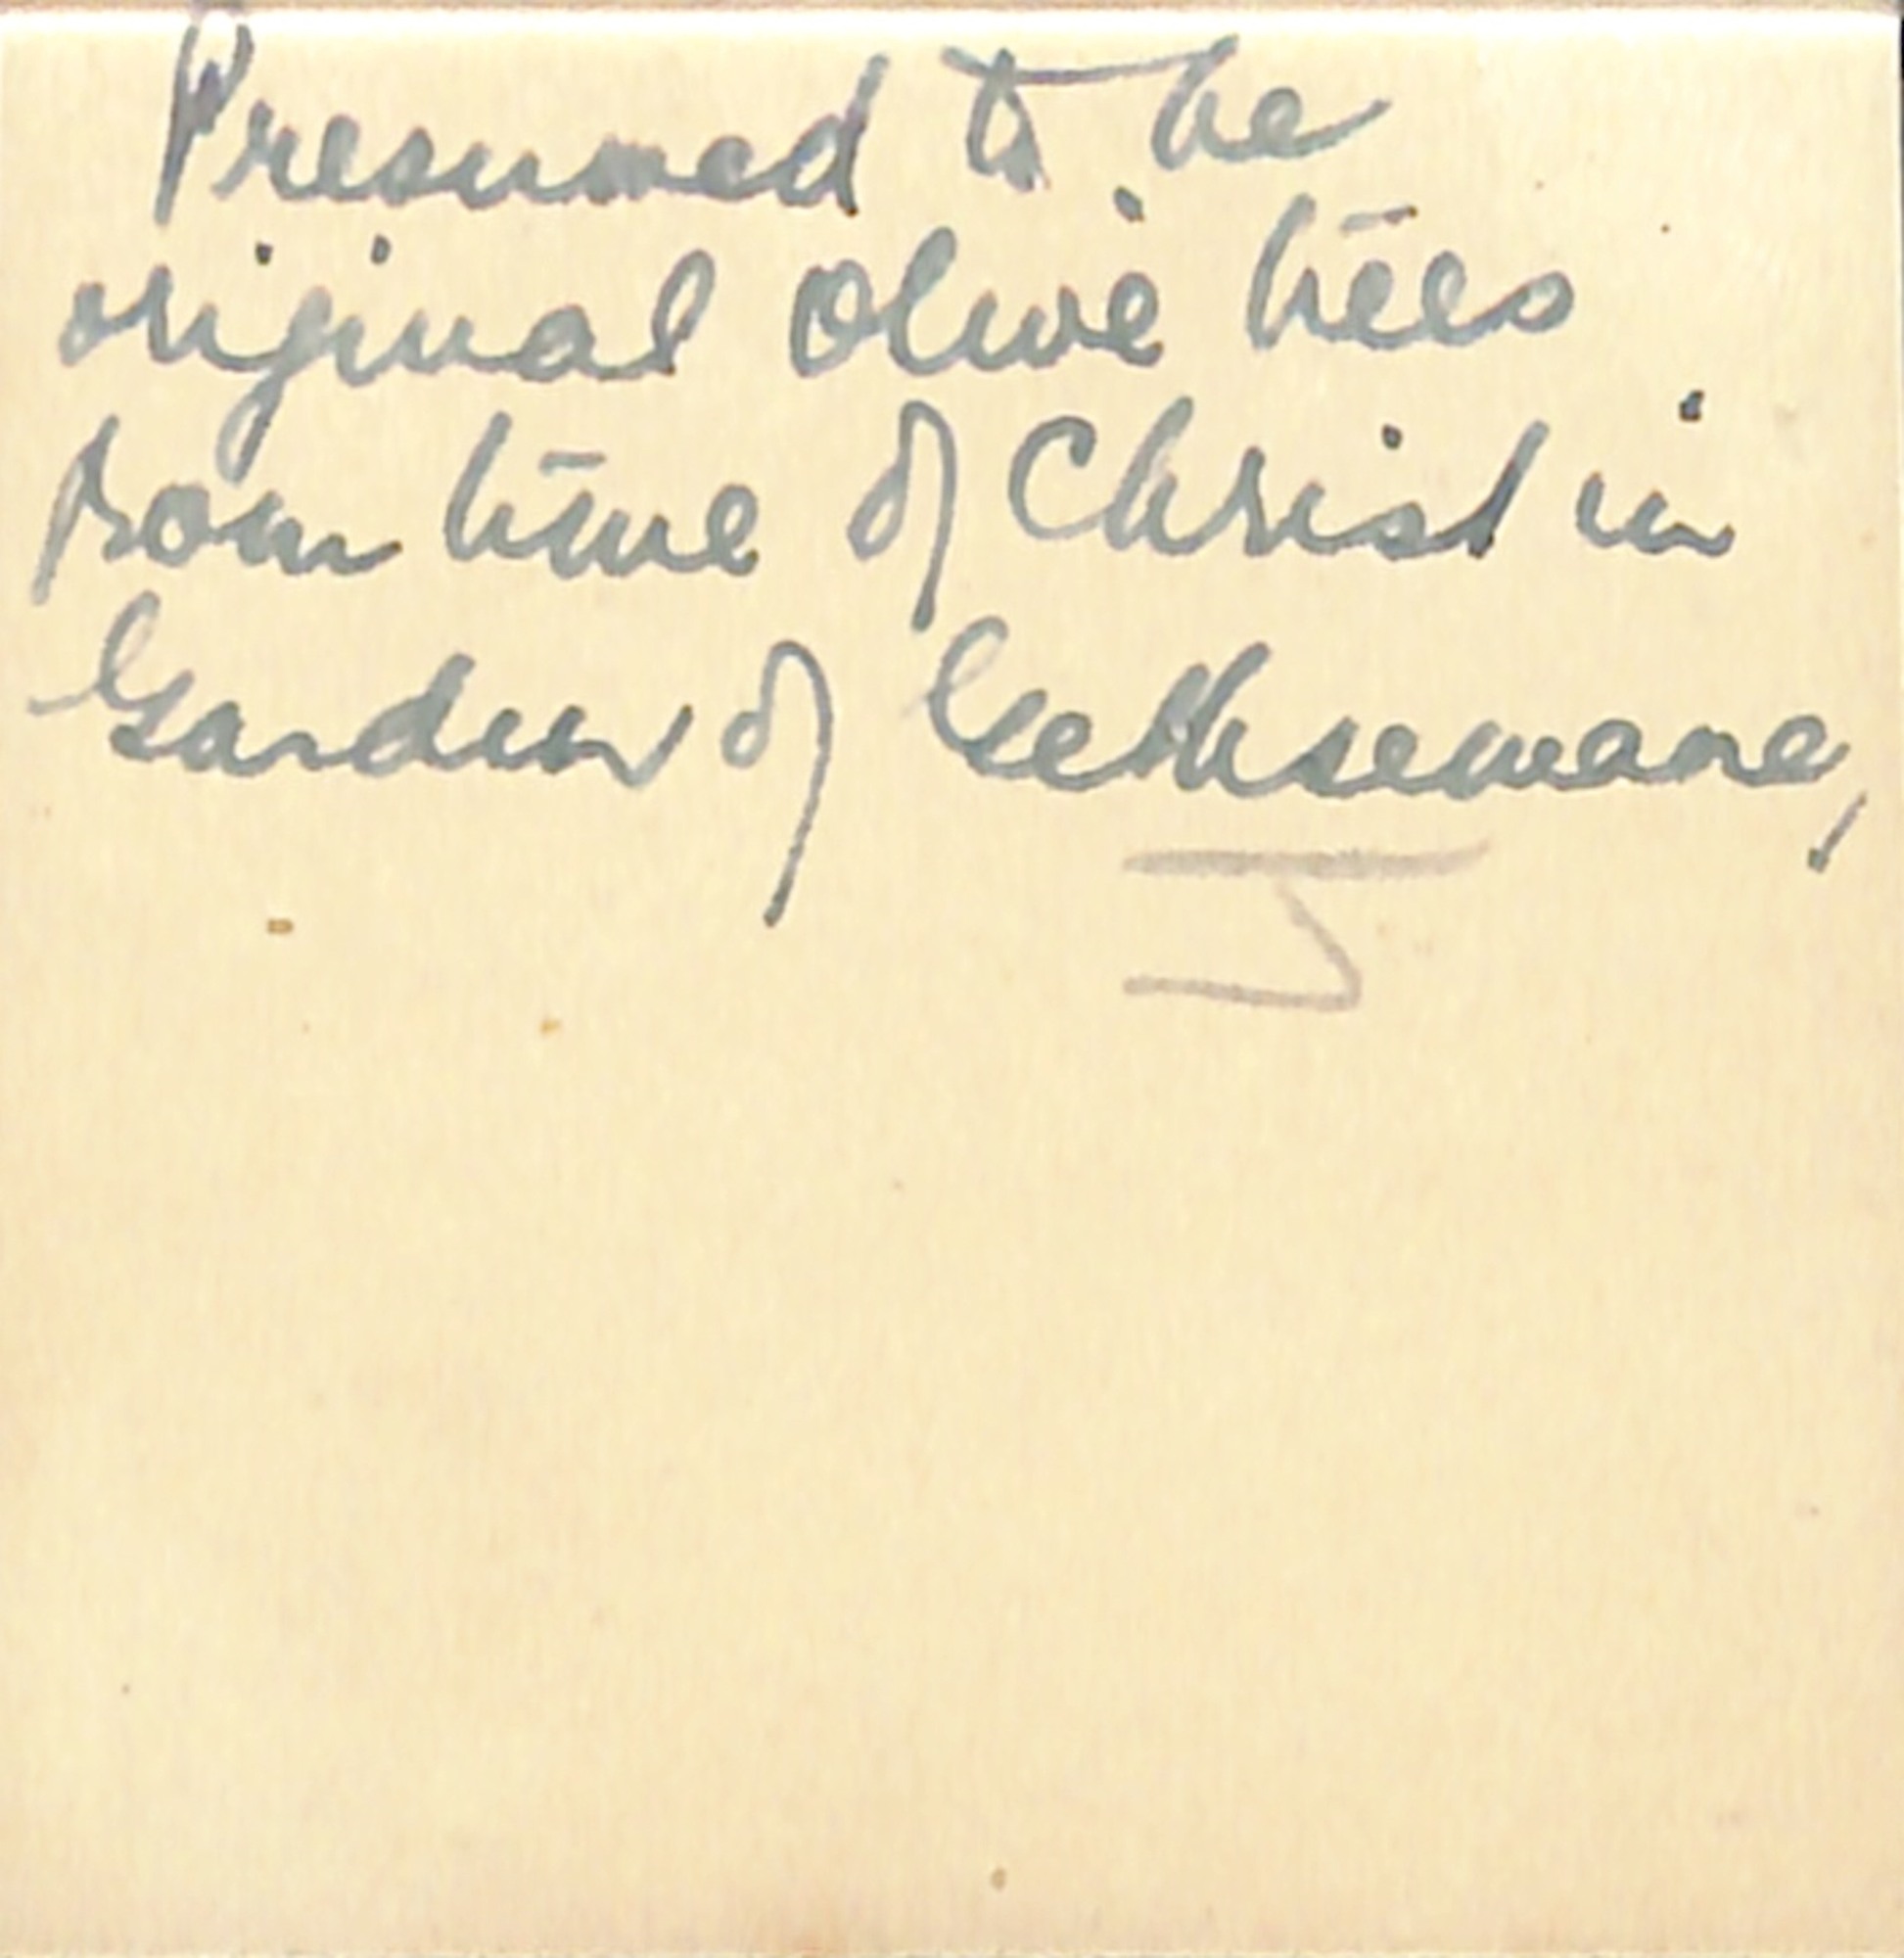 Presumed to be
original olive trees
from time of Christ in
Garden of Gethsemane,